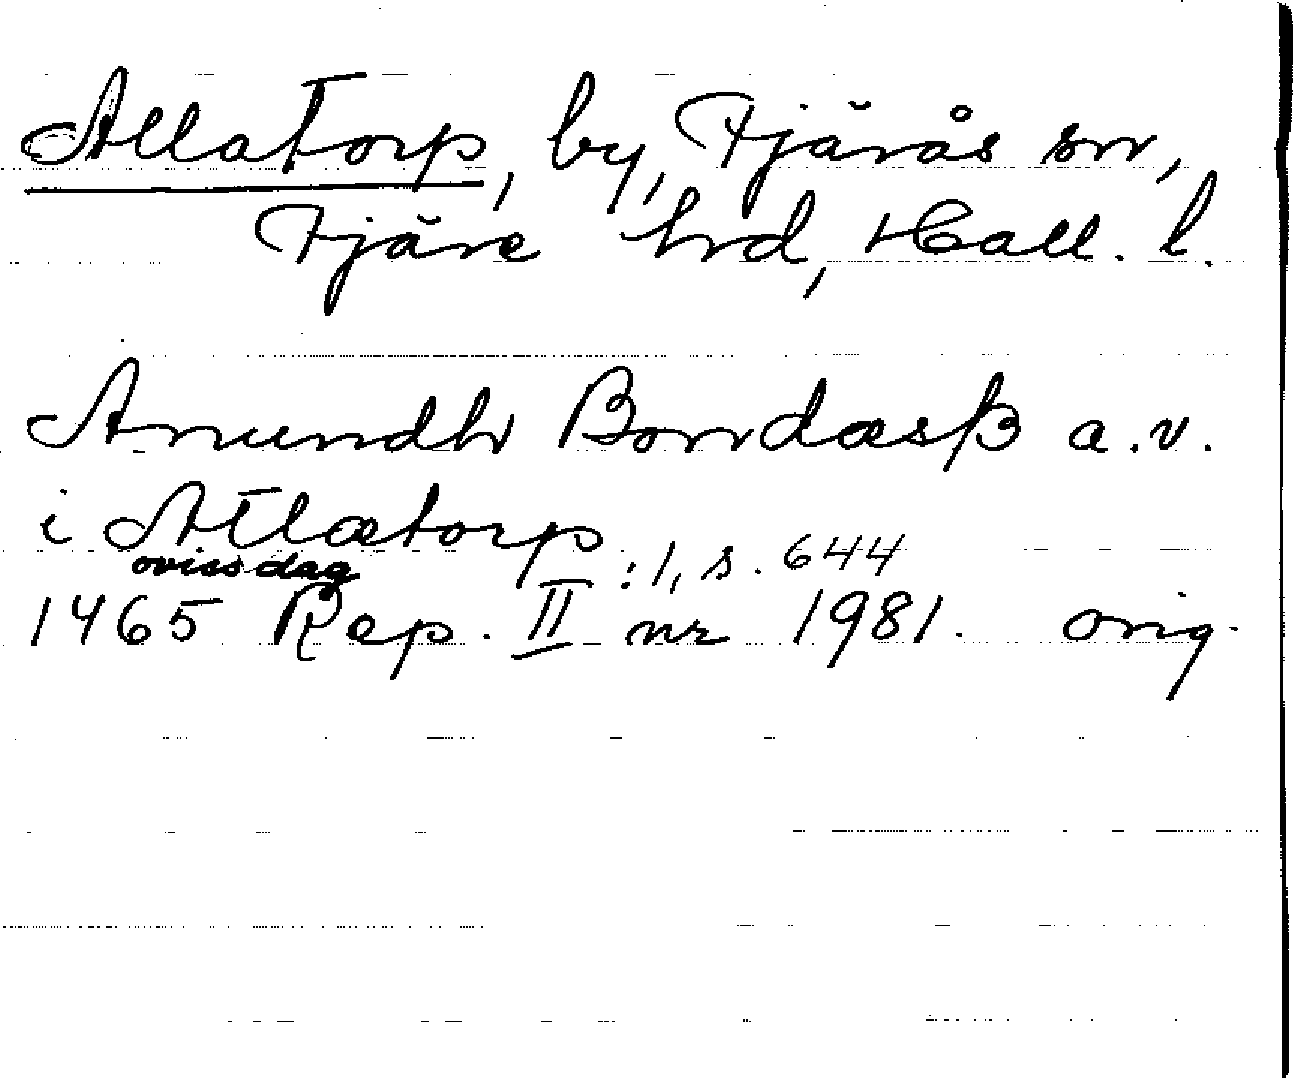 Allatorp, by, Fjärås sn,
Fjäre hrd, Hall. l.
Anundh Bondæsß a.v.
i Atlætorp
oviss dag
1465 Rep. II :1, s. 644 nr 1981. orig.